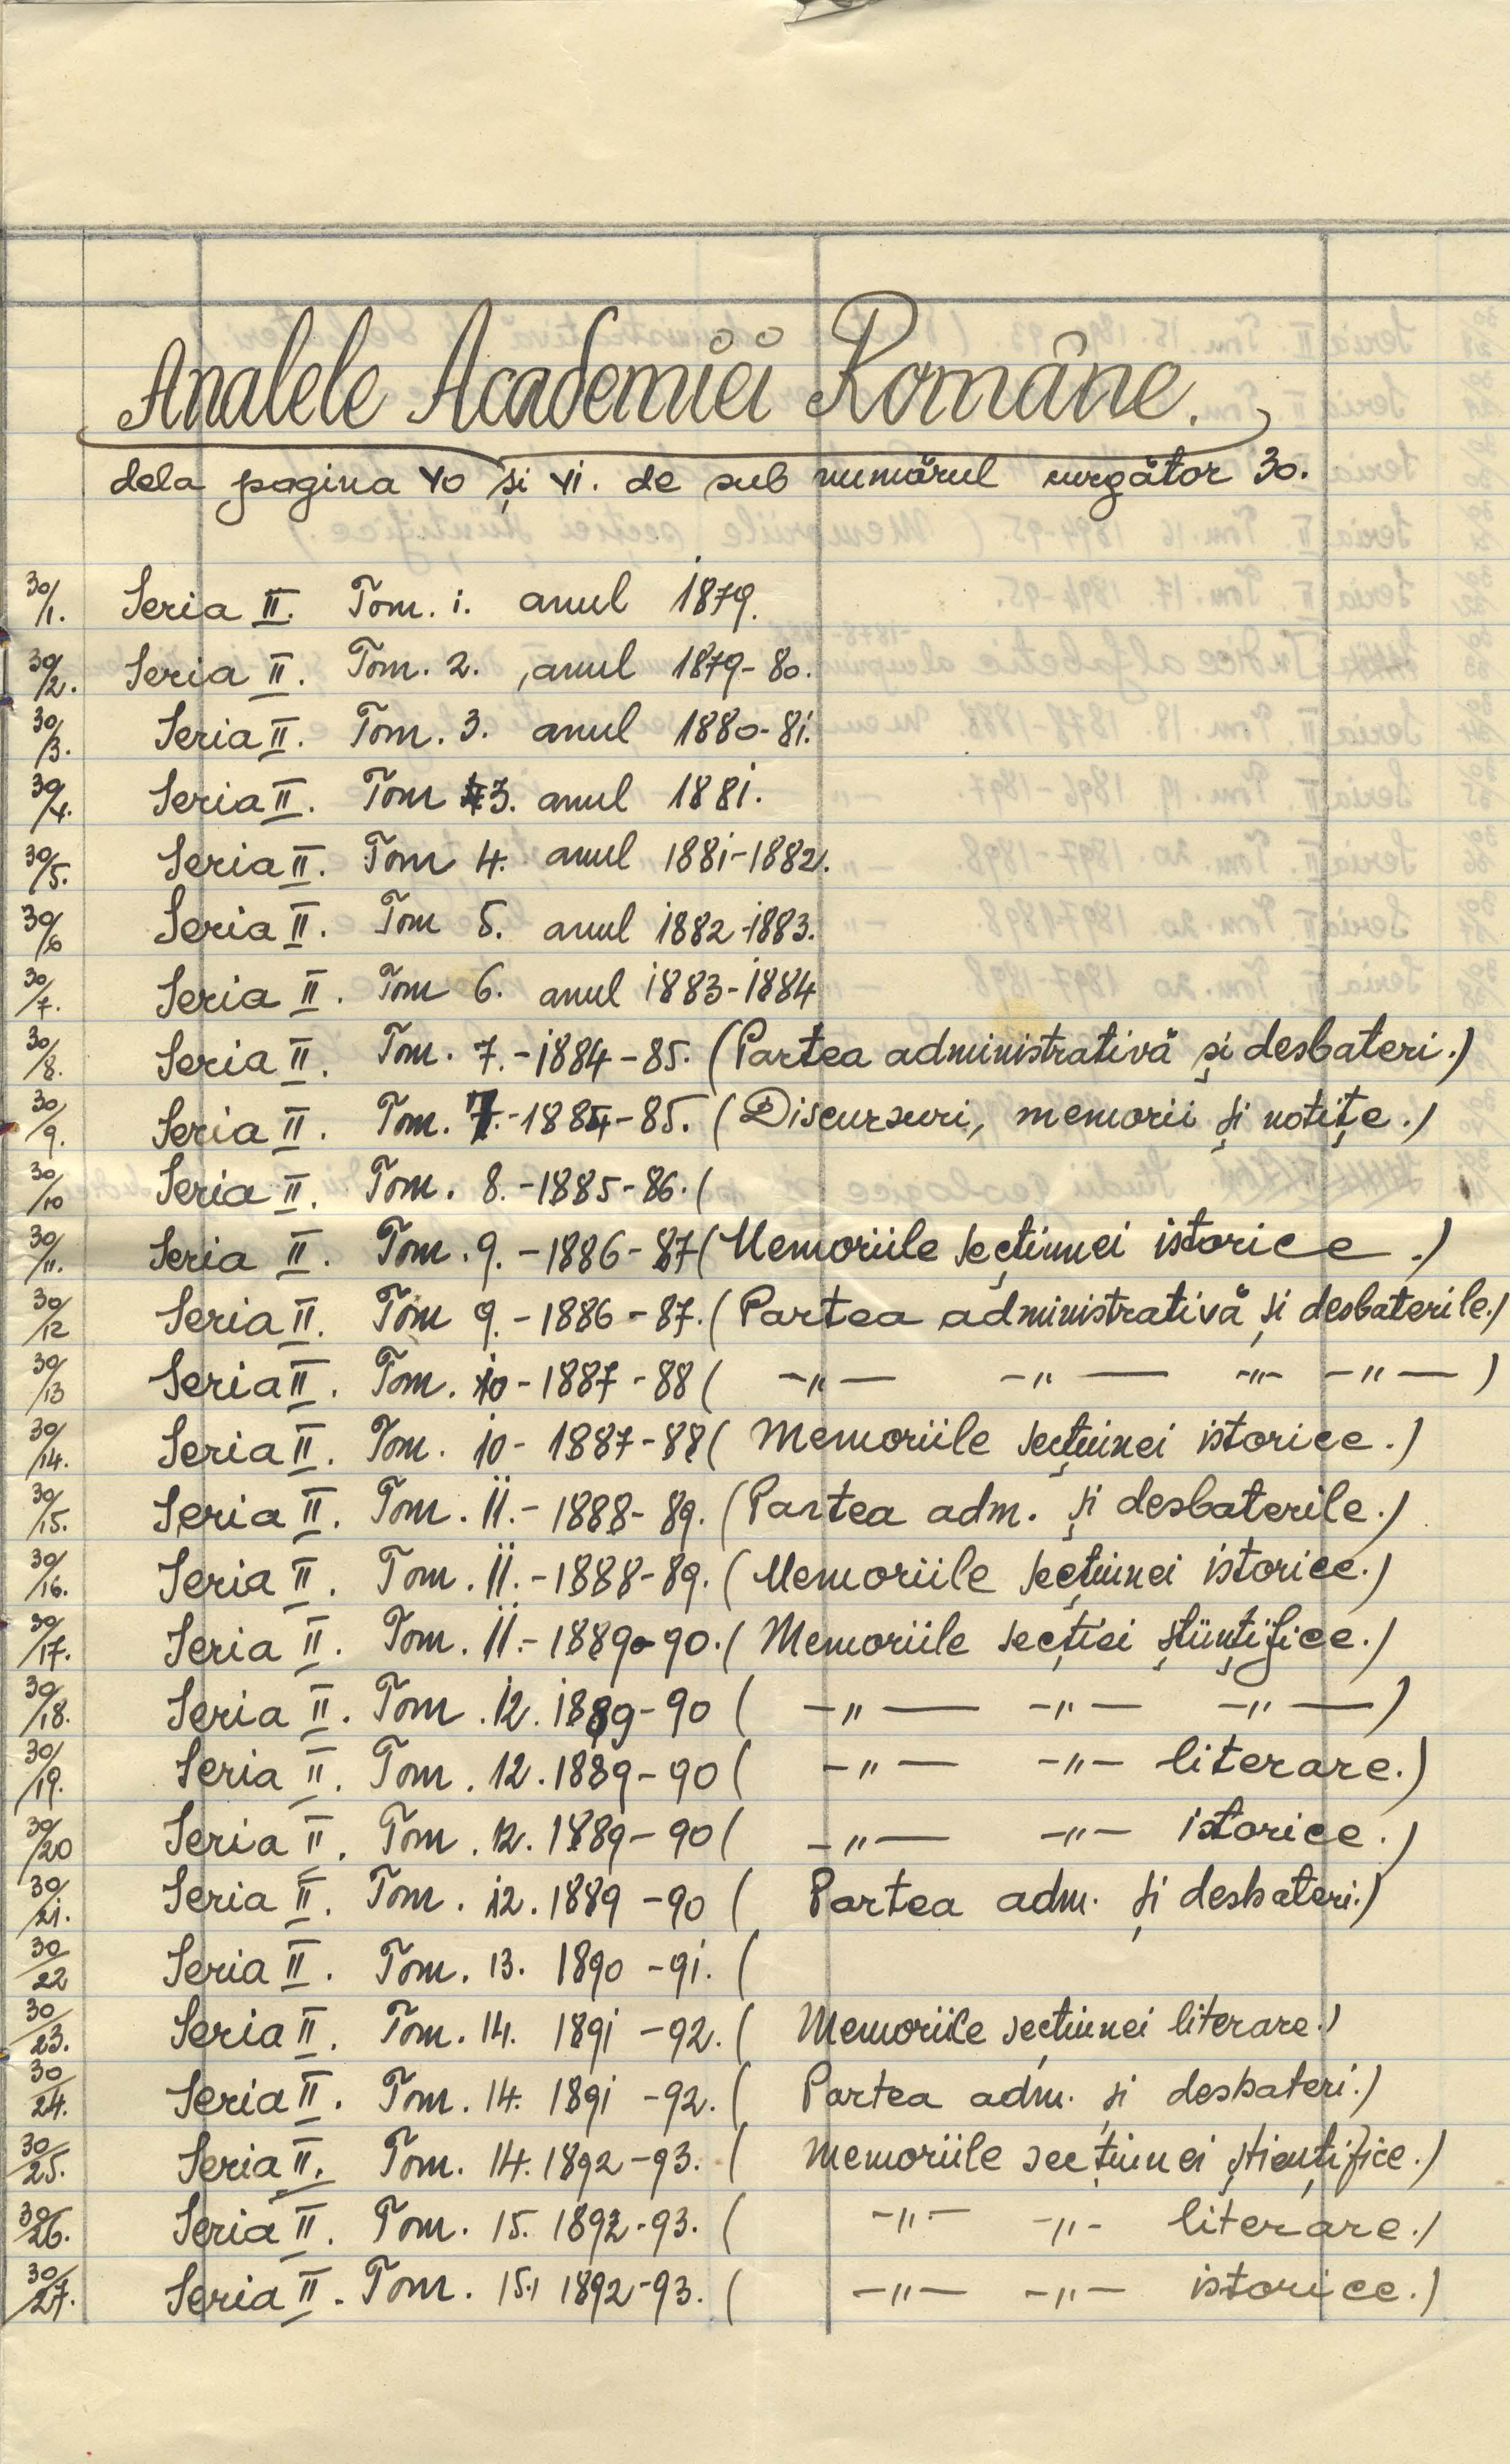 Analele Academiei Române.
dela pagina 40 și 41. de sub numărul curgător 30.
30/1. Seria II. Tom. 1. anul 1879.
30/2. Seria II. Tom. 2. anul 1879-80.
30/3. Seria II. Tom. 3. anul 1880-81.
30/4. Seria II. Tom 3. anul 1881.
30/5. Seria II. Tom 4. anul 1881-1882.
30/6 Seria II. Tom 5. anul 1882-1883.
30/7. Seria II. Tom 6. anul 1883-1884
30/8. Seria II. Tom. 7.-1884-85. (Partea administrativă și desbateri.)
30/9. Seria II. Tom. 7.-1884-85. (Discursuri, memorii și notițe.)
30/10 Seria II. Tom. 8.-1885-86. (
30/11. Seria II. Tom. 9.-1886-87 (Memoriile secțiunei istorice.)
30/12 Seria II. Tom 9.-1886-87. (Partea administrativă și desbaterile.)
30/13 Seria II. Tom. 10-1887-88 ( -"- -"- -"- -"- )
30/14. Seria II. Tom. 10-1887-88 ( Memoriile secțiunei istorice.)
30/15. Seria II. Tom. 11.-1888-89. (Partea adm. și desbaterile.)
30/16. Seria II. Tom. 11.-1888-89. (Memoriile secțiunei istorice.)
30/17. Seria II. Tom. 11.-1889-90. (Memoriile secției științifice.)
30/18. Seria II. Tom. 12. 1889-90 ( -"- -"- -"- )
30/19. Seria II. Tom. 12. 1889-90 ( -"- -"- literare.)
30/20 Seria II. Tom. 12. 1889-90 ( -"- -"- istorice.)
30/21. Seria II. Tom. 12. 1889-90 ( Partea adm. și desbateri.)
30/22 Seria II. Tom. 13. 1890-91. (
30/23. Seria II. Tom. 14. 1891-92. ( Memoriile secțiunei literare.)
30/24. Seria II. Tom. 14. 1891-92. ( Partea adm. și desbateri.)
30/25. Seria II. Tom. 14. 1892-93. ( Memoriile secțiunei știențifice.)
30/26. Seria II. Tom. 15. 1892-93. ( -"- -"- literare.)
30/27. Seria II. Tom. 15. 1892-93. ( -"- -"- istorice.)